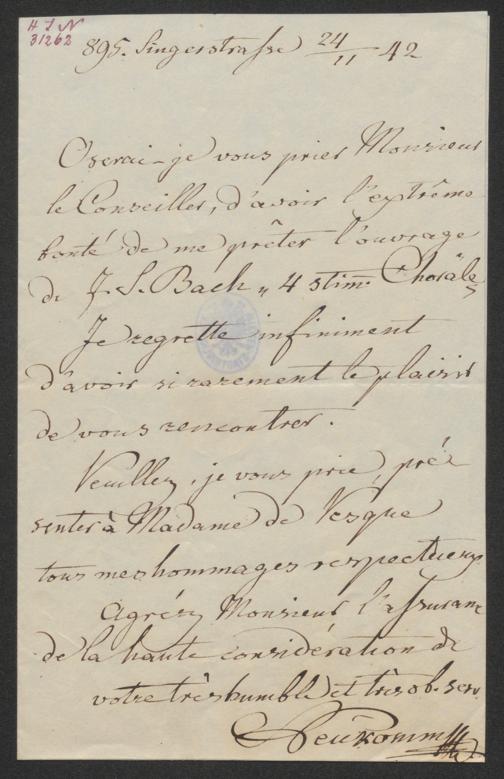 H I N
31262
895. Singerstrasse 24/11 42
Oserai-je vous prier Monsieur
le Conseiller, d'avoir l'extrême
bonté de me prêter l'ouvrage
de J. S. Bach „ 4 stim. Choräle„
Je regrette infiniment
d'avoir si rarement le plaisir
de vous rencontrer.
Veuillez, je vous prie, pré
senter à Madame de Vesque
tous mes hommages respectueux
Agréez Monsieur l'assuran
de la haute considération de
votre très humble et très ob. serv
Neukomm